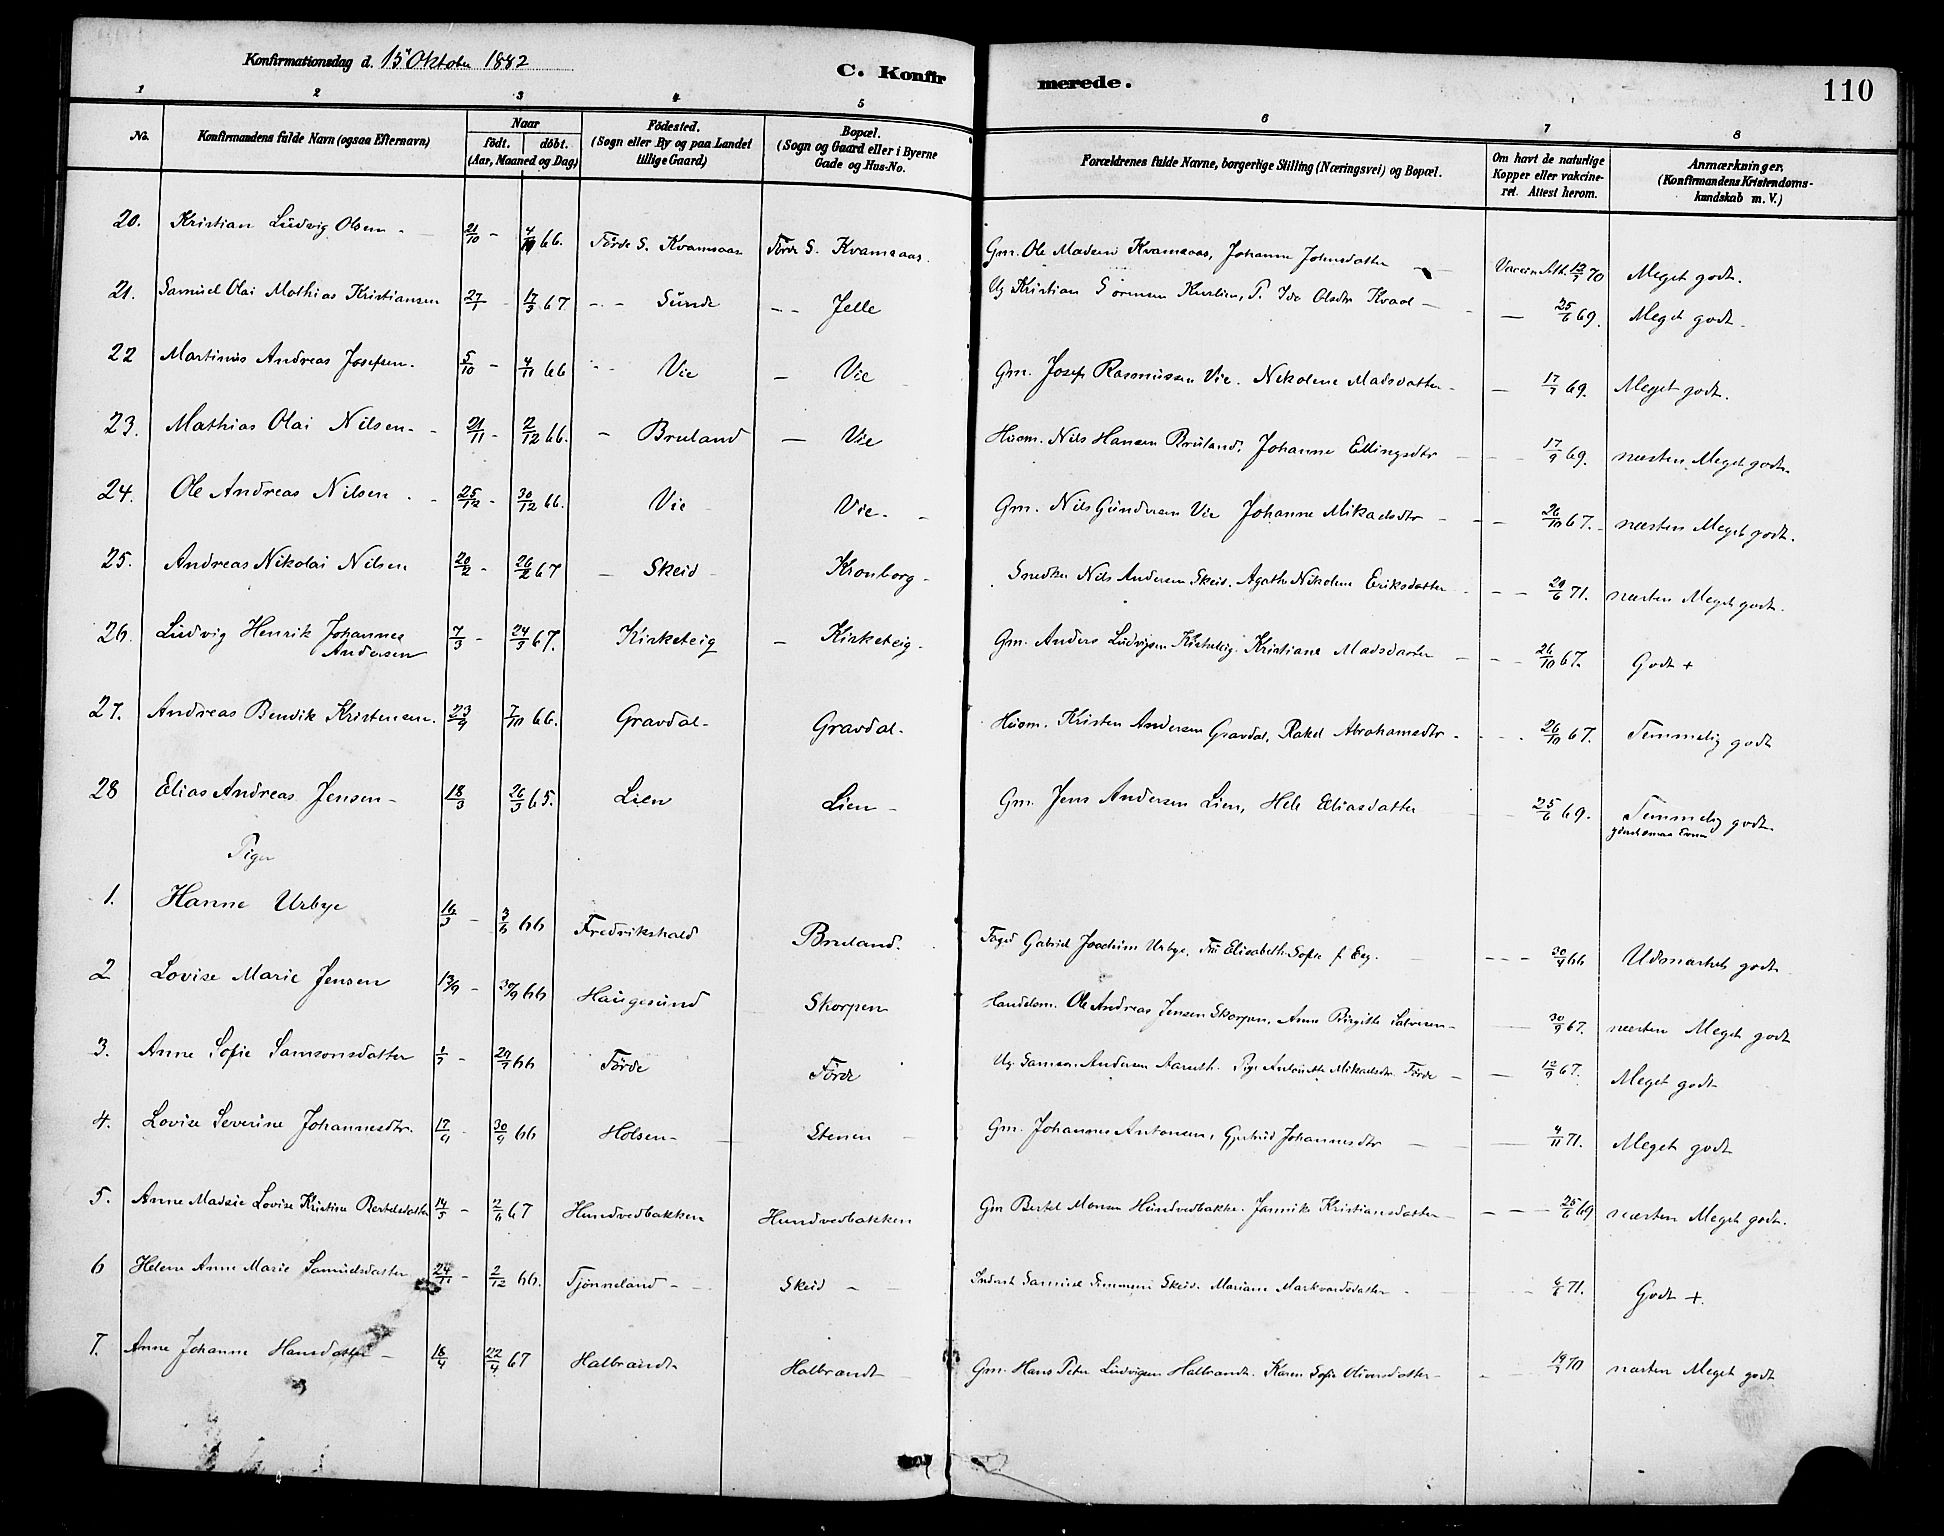 Konfirmationsdag d. 15 Oktober 1882
C. Konfirmerede.
110
1 2 3 4 5 6 7 8
No.
Konfirmandens fulde Navn (ogsaa Efternavn)
Naar
födt. döbt.
(Aar, Maaned og Dag)
Födested.
(Sogn eller By og paa Landet
tillige Gaard)
Bopæl.
(Sogn og Gaard eller i Byerne
Gade og Hus-No.
Forældrenes fulde Navne, borgerlige Stilling (Næringsvei) og Bopæl.
Om havt de naturlige
Kopper eller vakcine-
ret. Attest herom.
Anmærkninger,
(Konfirmandens Kristendoms-
kundskab m. V.)
20. Kristian Ludvig Olsen - 21/10 - 4/11 66. Förde S. Kvamsaas Förde S. Kvamsaas. Gm. Ole Madsen Kvamsaas, Johanne Johnsdatter Vaccin Att. 12/7 70 Meget godt.
21. Samuel Olai Mathias Kristiansen 27/1 - 17/3 67 - - Sunde - - Jelle Ug Kristian Sörensen P. Ida Olsdtr Kvaal - - 25/6 69. Meget godt.
22 Martinus Andreas Josefsen. 5/10 - 4/11 66 - - Vie - Vie Gm. Josef Rasmussen Vie. Nikoline Madsdatter - - 17/9 69. Meget godt.
23. Mathias Olai Nilsen - 21/11 - 2/12 66. - Bruland - Vie Husm. Nils Hansen Bruland, Johanne Ellingsdtr - - 17/9 69. næsten Meget godt.
24. Ole Andreas Nilsen. 25/12 - 30/12 66. Vie Vie. Gm. Nils Gundersen Vie Johanne Mikaelsdtr - - 26/10 67. næsten Meget godt.
25. Andreas Nikolai Nilsen 20/2 - 26/2 67 - Skeid - Kronborg - Snedker Nils Andersen Skeid. Agathe Nikoline Eriksdatter - - 29/6 71. næsten Meget godt.
26. Ludvig Henrik Johannes
Andersen 7/3 - 24/3 67. Kirketeig - Kirketeig. Gm. Anders Ludvigsen Kirketeig. Kristiane Madsdatter - - 26/10 67. Godt +
27. Andreas Bendik Kristensen. 23/9 7/10 66. Gravdal - Gravdal. Husm. Kristen Andersen Gravdal, Rakel Abrahamsdtr - - 26/10 67. Temmelig godt
28 Elias Andreas Jensen - 18/3 26/3 65. Lien Lien - Gm. Jens Andersen Lien, Hele Eliasdatter 25/6 69. Temmelig godt.
Evner
Piger
1. Hanne Urbye 16/3 - 3/6 66 Fredrikshald Bruland. Foged Gabriel Joachim Urbye, Fru Elisabeth Sofie f. - - - 30/4 66 Udmærket godt
2 Lovise Marie Jensen 13/9 - 30/9 66 Haugesund Skorpen Handelsm. Ole Andreas Jensen Skorpen, Anne Birgitte Salvesen - 30/9 67. næsten Meget godt
3. Anne Sofie Samsonsdatter 1/7 - 29/7 66 Förde Förde Ug. Samson Andersen Pige Antonette Mikaelsdtr. Förde - 12/9 67. Meget godt
4. Lovise Severine Johannesdtr. 17/9 30/9 66 Holsen - Stenen - Gm. Johannes Antonsen, Gjertrud Johannesdtr - 4/11 71. Meget godt
5. Anne Madsie Lovise Kristine Bertelsdatter 14/5 - 2/6 67 Hundvedbakken Hundvedbakken Gm Bertel Monsen Hundvedbakke. Jannike Kristiansdatter - - - 25/6 69 næsten Meget godt.
6 Helene Anne Marie Samuelsdatter 24/11 - 2/12 66. Tjønneland - Skeid - Inderst Samuel Simmensen Skeid. Mariane Markvardsdatter - 6/6 71. Godt +.
7. Anne Johanne Hansdatter - 18/4 22/4 67 Halbrandt Halbrandt - Gm. Hans Peter Ludvigsen Halbrandt. Karen Sofie Oliversdatter - - 19/7 70 næsten Meget godt